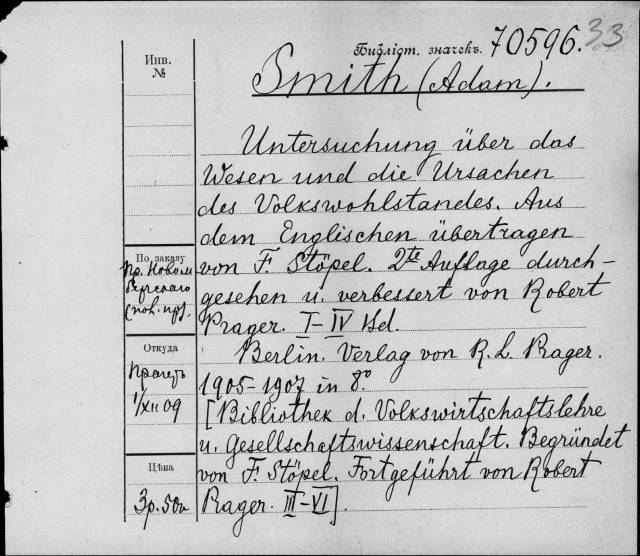 Библіот. значекъ. 70596. 33
Smith (Adam).
Инв.
№
Untersuchung über das
Wesen und die Ursachen
des Volkswohlstandes. Aus
dem Englischen übertragen
von F. Stöpel. 2te Auflage durch-
gesehen u. verbessert von Robert
Prager. I–IV Bd.
Berlin. Verlag von R. L. Prager.
1905–1907 in 8º
[Bibliothek d. Volkswirtschaftslehre
u. Gesellschaftswissenschaft. Begründet
von F. Stöpel. Fortgeführt von Robert
Prager. III–VI].
По заказу
пр.
Откуда
1/XII 09
Цѣна
3р. 50к